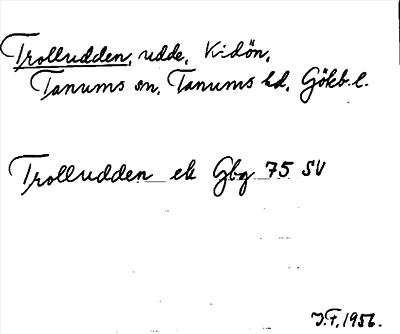 Trolludden, udde, Vidön,
Tanums sn, Tanums hd, Gökb. l.
Trolludden ek Gbg 75 SV
J.F. 1956.